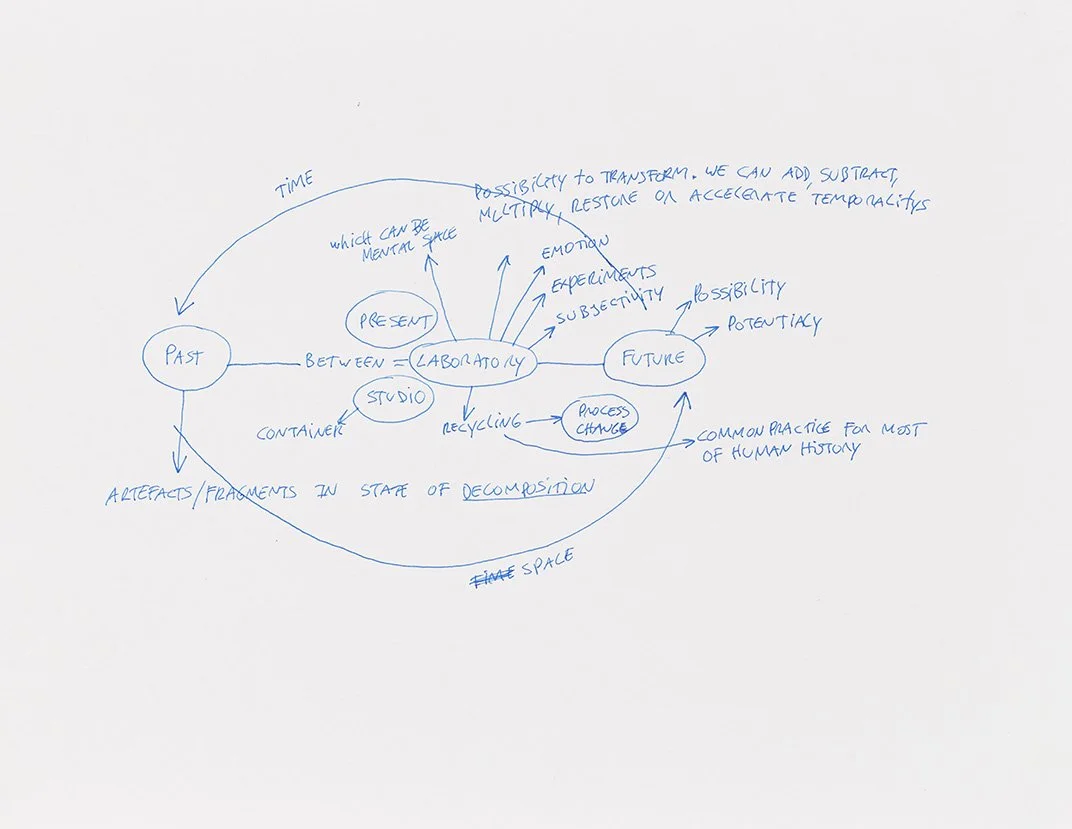 TIME
POSSIBILITY to TRANSFORM. WE CAN ADD, SUBTRACT,
MULTIPLY, RESTORE OR ACCELERATE TEMPORALITYS
which CAN BE
MENTAL SPACE
EMOTION
EXPERIMENTS
SUBJECTIVITY
POSSIBILITY
POTENTIALY
PRESENT
PAST
BETWEEN = LABORATORY
FUTURE
STUDIO
CONTAINER
RECYCLING
PROCESS
CHANGE
COMMON PRACTICE FOR MOST
OF HUMAN HISTORY
ARTEFACTS/FRAGMENTS IN STATE OF DECOMPOSITION
TIME SPACE